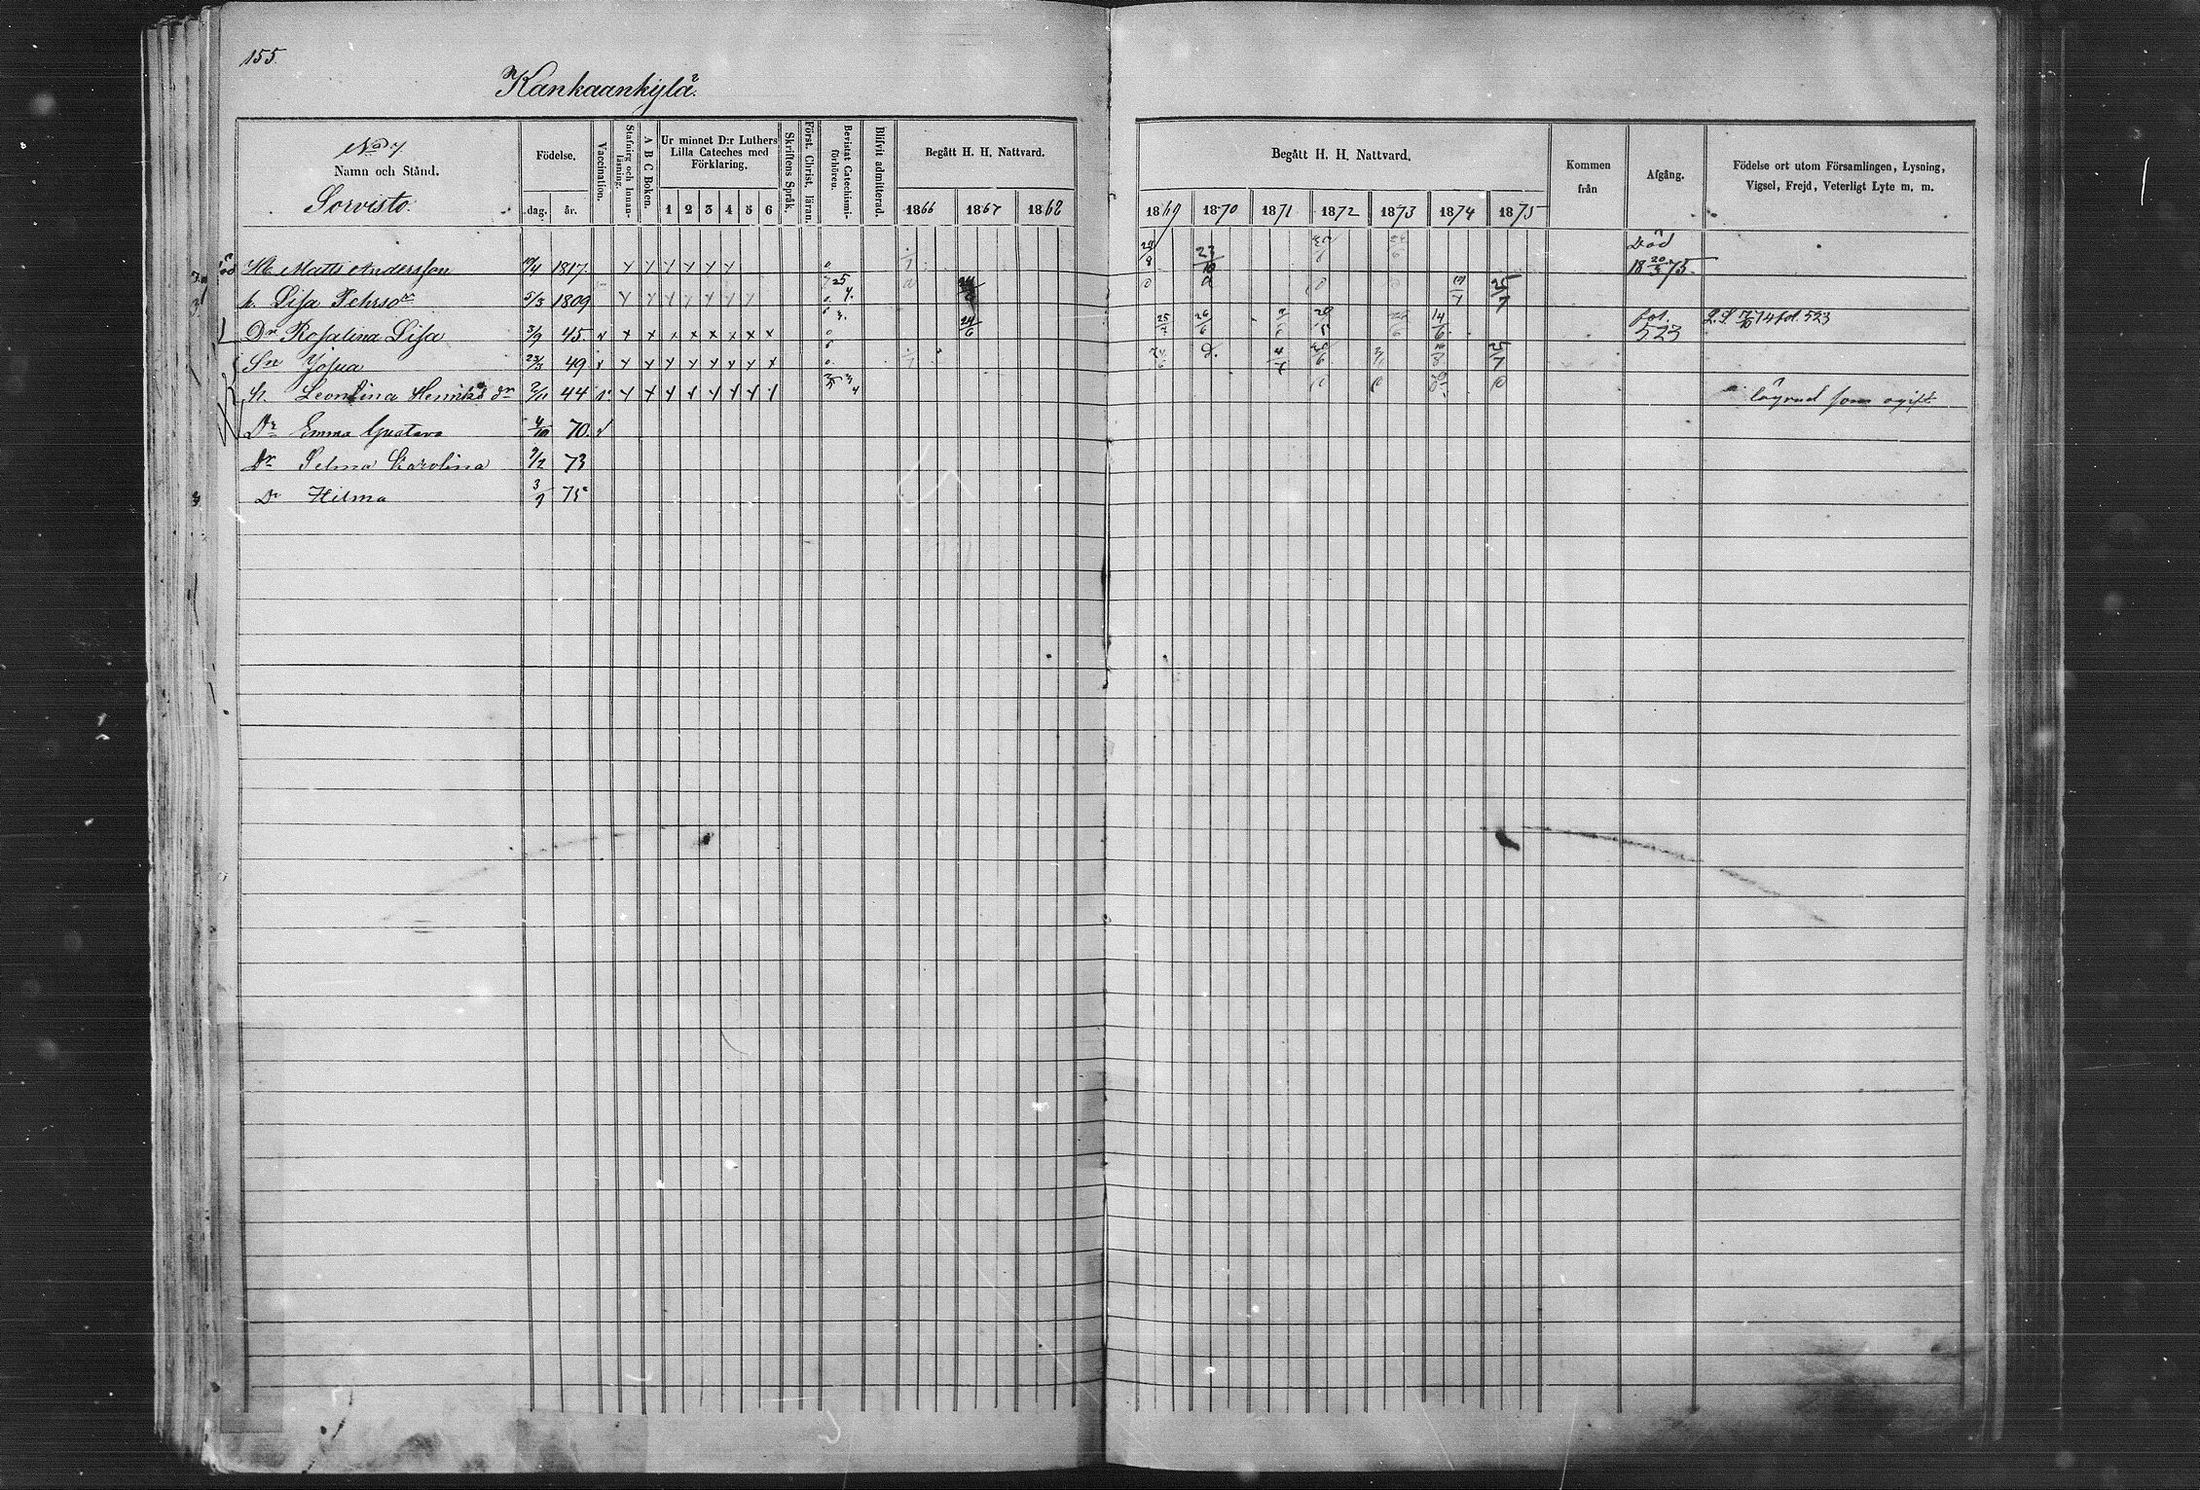 155.
Kankaankylä.
No 7.
Namn och Stånd.
Sorvisto.
Födelse.
dag. år.
Vaccination.
Stafning och Innanläsning.
A B C Boken.
Ur minnet D:r Luthers Lilla Cateches med Förklaring.
1 2 3 4 5 6
Skriftens Språk.
Först. Christ. läran.
Bevistat Catechismiförhören.
Blifvit admitterad.
Begått H. H. Nattvard.
1866 1867 1868
Begått H. H. Nattvard.
1869 1870 1871 1872 1873 1874 1875
Kommen från
Afgång.
Födelse ort utom Församlingen, Lysning, Vigsel, Frejd, Veterligt Lyte m. m.
Matts Andersson 1817. x x x x x x 23/10 Död 18 20/3 75.
h. Lisa Pehrsdr 5/3 1809 x x x x x x x 25/7
Dr Rosalina Lisa 3/9 45. x x x x x x x x x 24/6 25/7 26/6 14/6 fol. 523 fol. 523
Sn Josua 23/3 49 x x x x x x x x x 25/7
h. Leontina Henriksdr 44 x x x x x x x x lägrad som ogift
Dr Emma Gustava 4/10 70.
Dr Selma Karolina 73
Dr Hilma 3/9 75